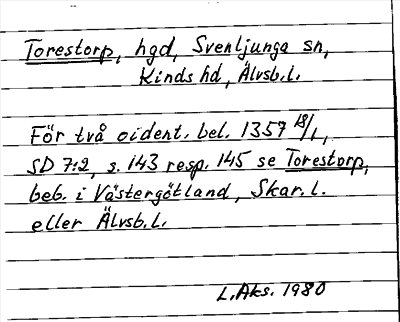 Torestorp, hgd, Svenljunga sn,
Kinds hd, Älvsb.l.
För två oident. bel. 1357 18/1,
SD 7:2, s. 143 resp. 145 se Torestorp,
beb. i Västergötland, Skar.l.
eller Älvsb.l.
L.Aks. 1980